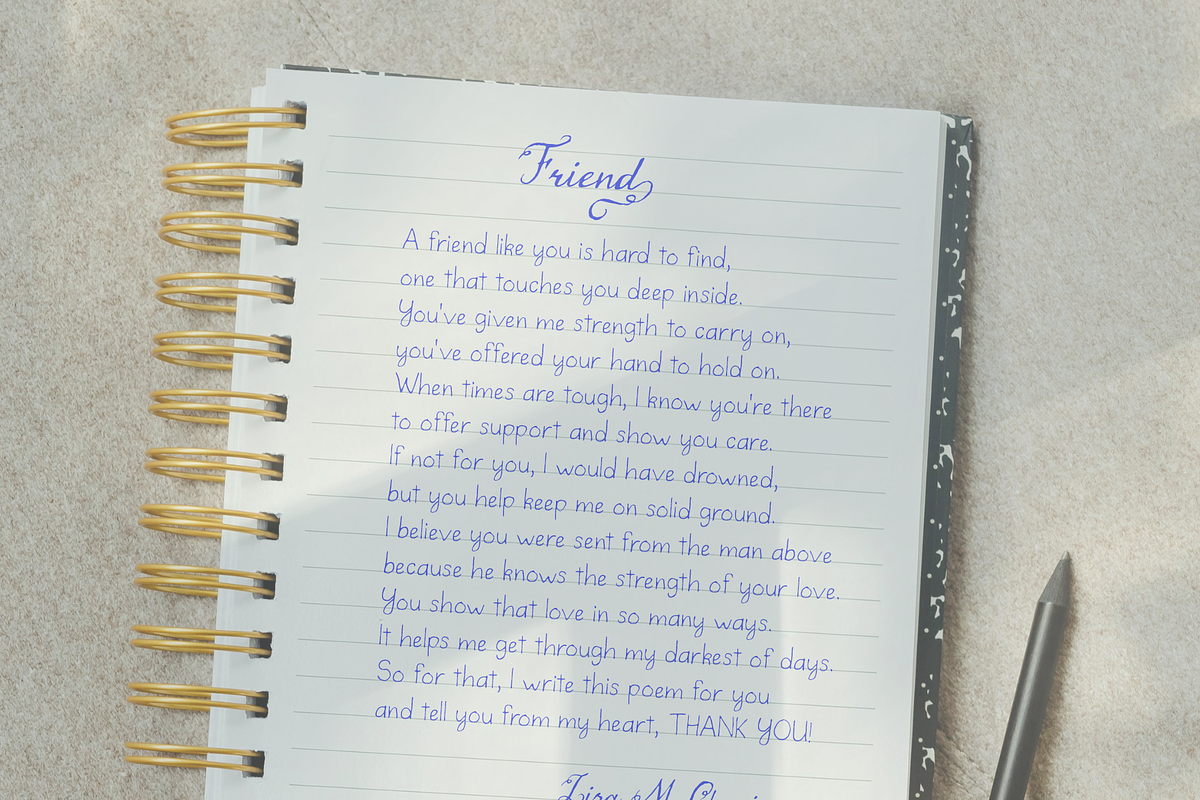 Friend
A friend like you is hard to find,
one that touches you deep inside.
You've given me strength to carry on,
you've offered your hand to hold on.
When times are tough, I know you're there
to offer support and show you care.
If not for you, I would have drowned,
but you help keep me on solid ground.
I believe you were sent from the man above
because he knows the strength of your love.
You show that love in so many ways.
It helps me get through my darkest of days.
So for that, I write this poem for you
and tell you from my heart, THANK YOU!
Lisa M.